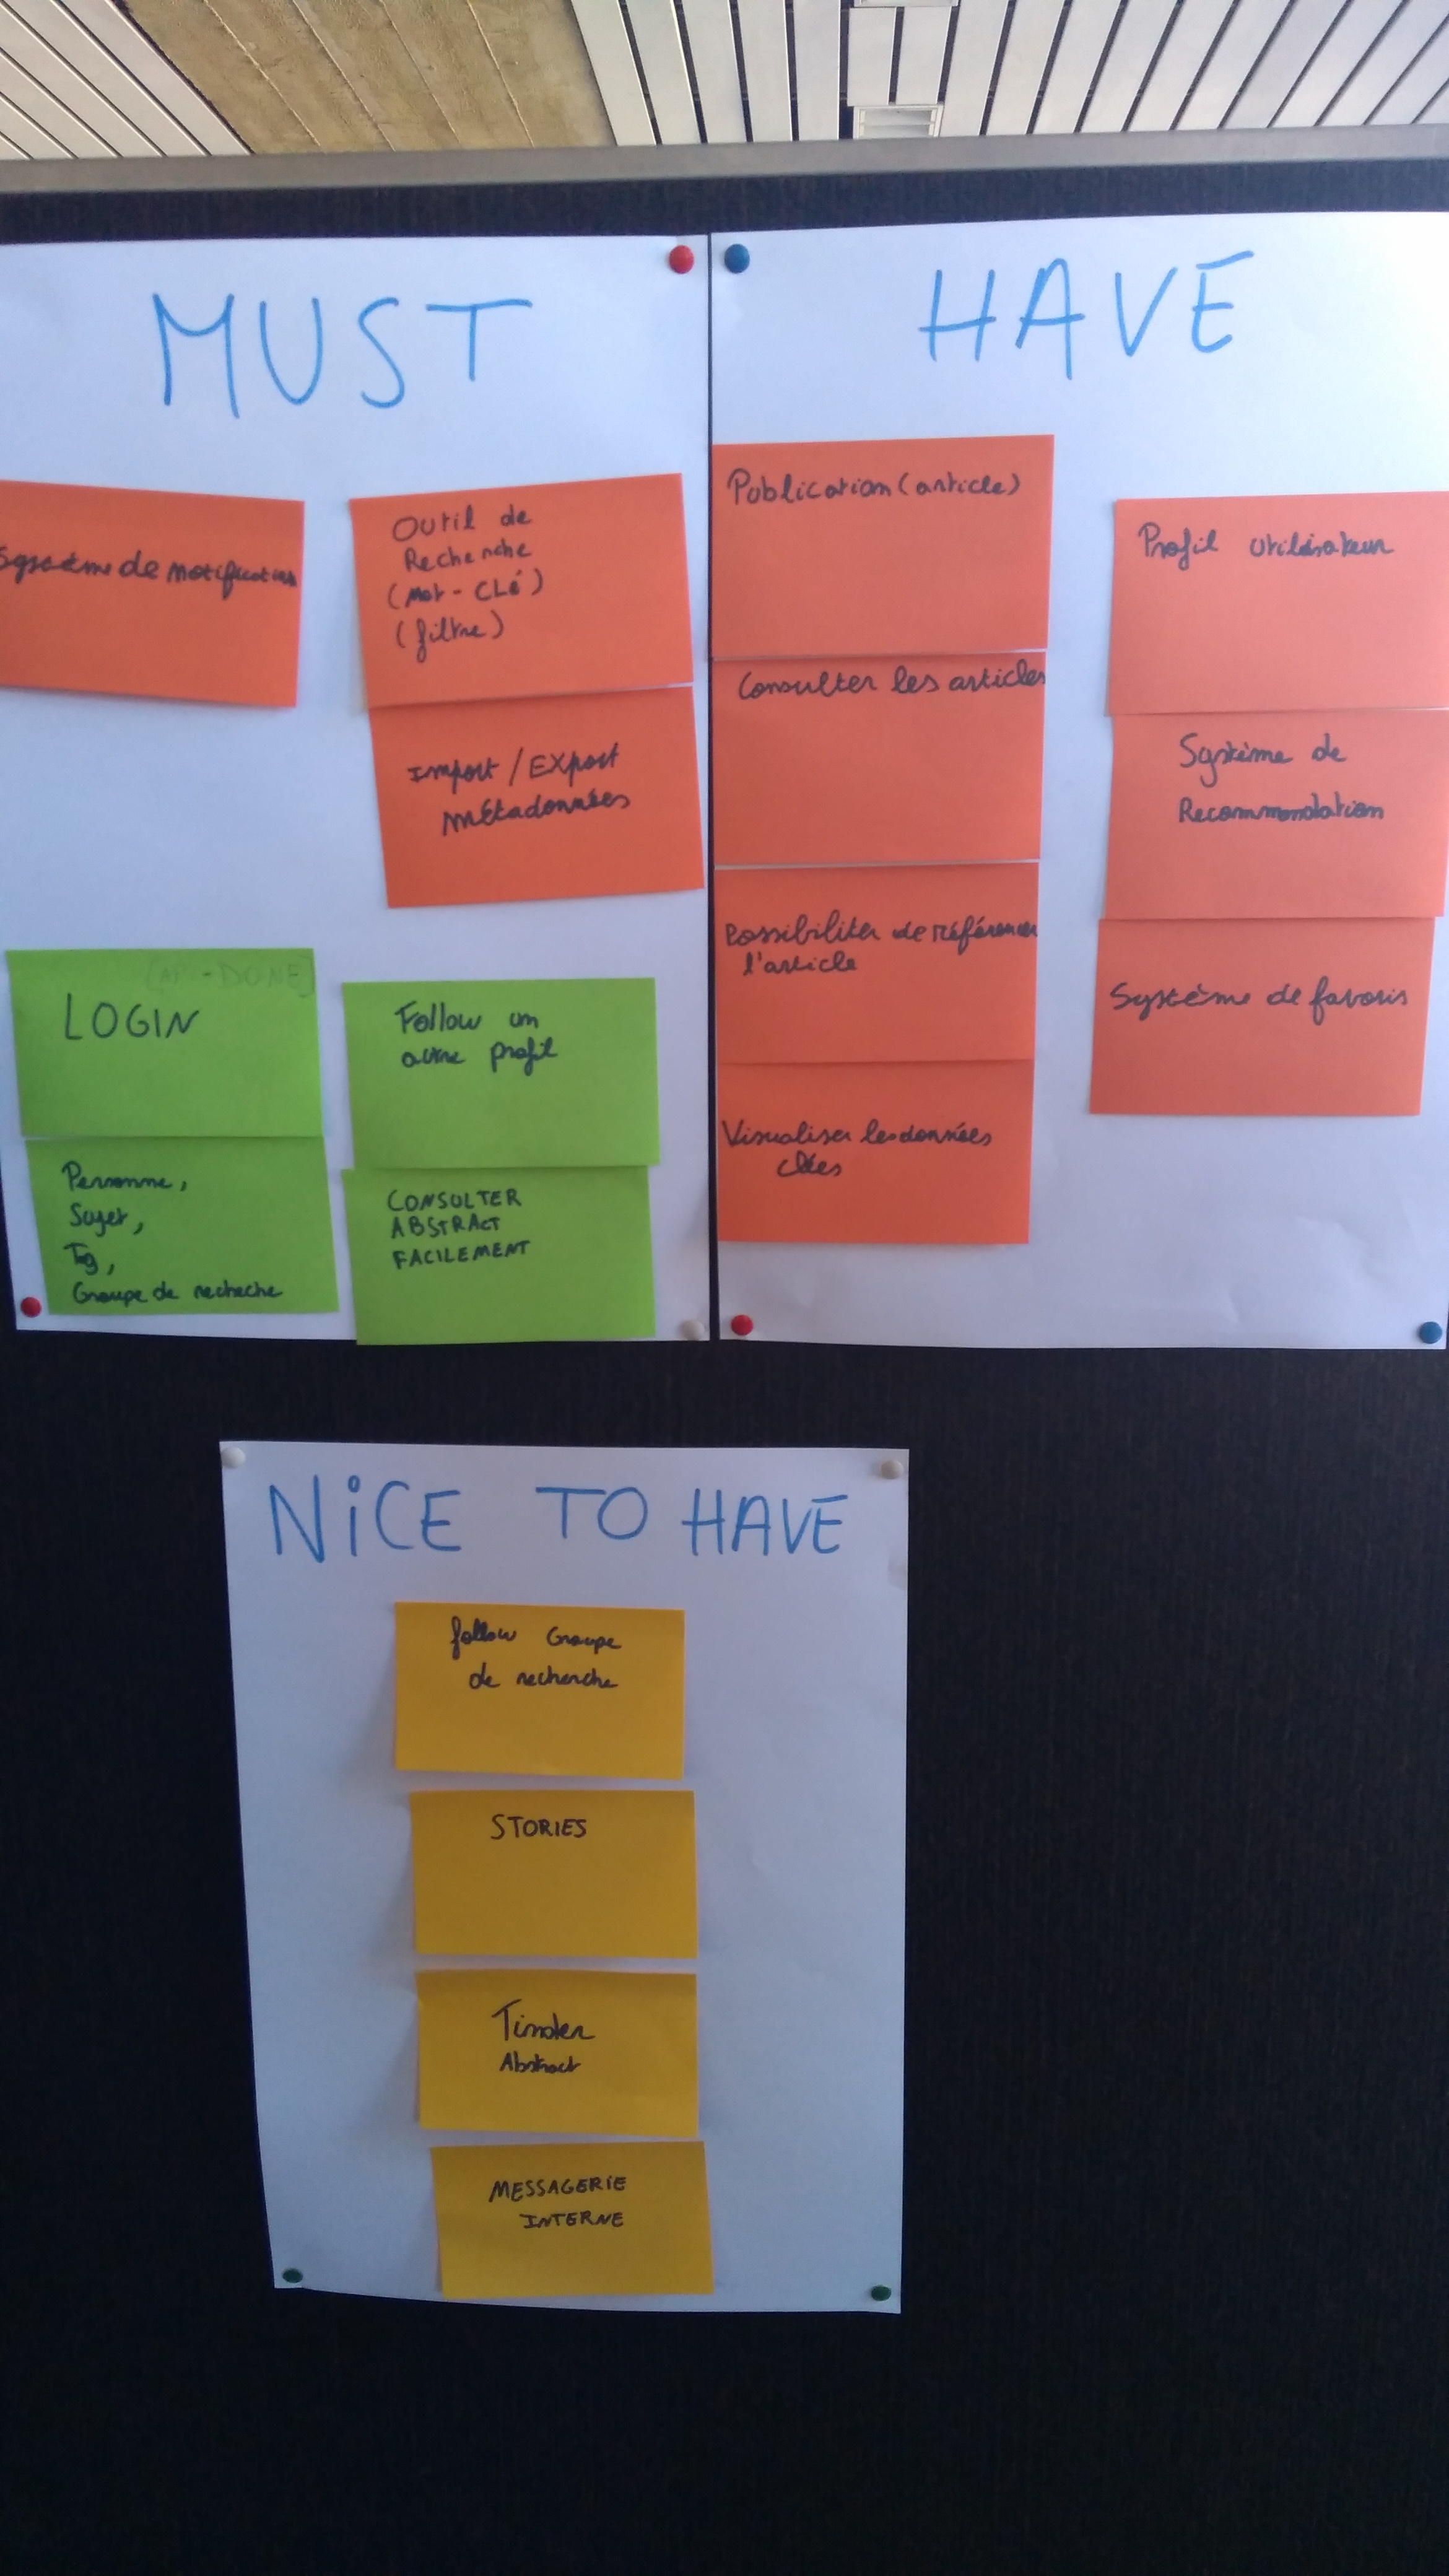 MUST HAVE
Système de notification
Outil de
Recherche
(Mot-Clé)
(filtre)
Import / Export
métadonnées
LOGIN
Follow un
autre profil
Personne,
Sujet,
Tag,
Groupe de recheche
CONSULTER
ABSTRACT
FACILEMENT
Publication (article)
Consulter les articles
Possibiliter de référencer
l'article
Visualiser les données
clées
Profil utilisateur
Système de
Recommendation
Système de favoris
NiCE TO HAVE
follow Groupe
de recherche
STORIES
Tinder
Abstract
MESSAGERIE
INTERNE